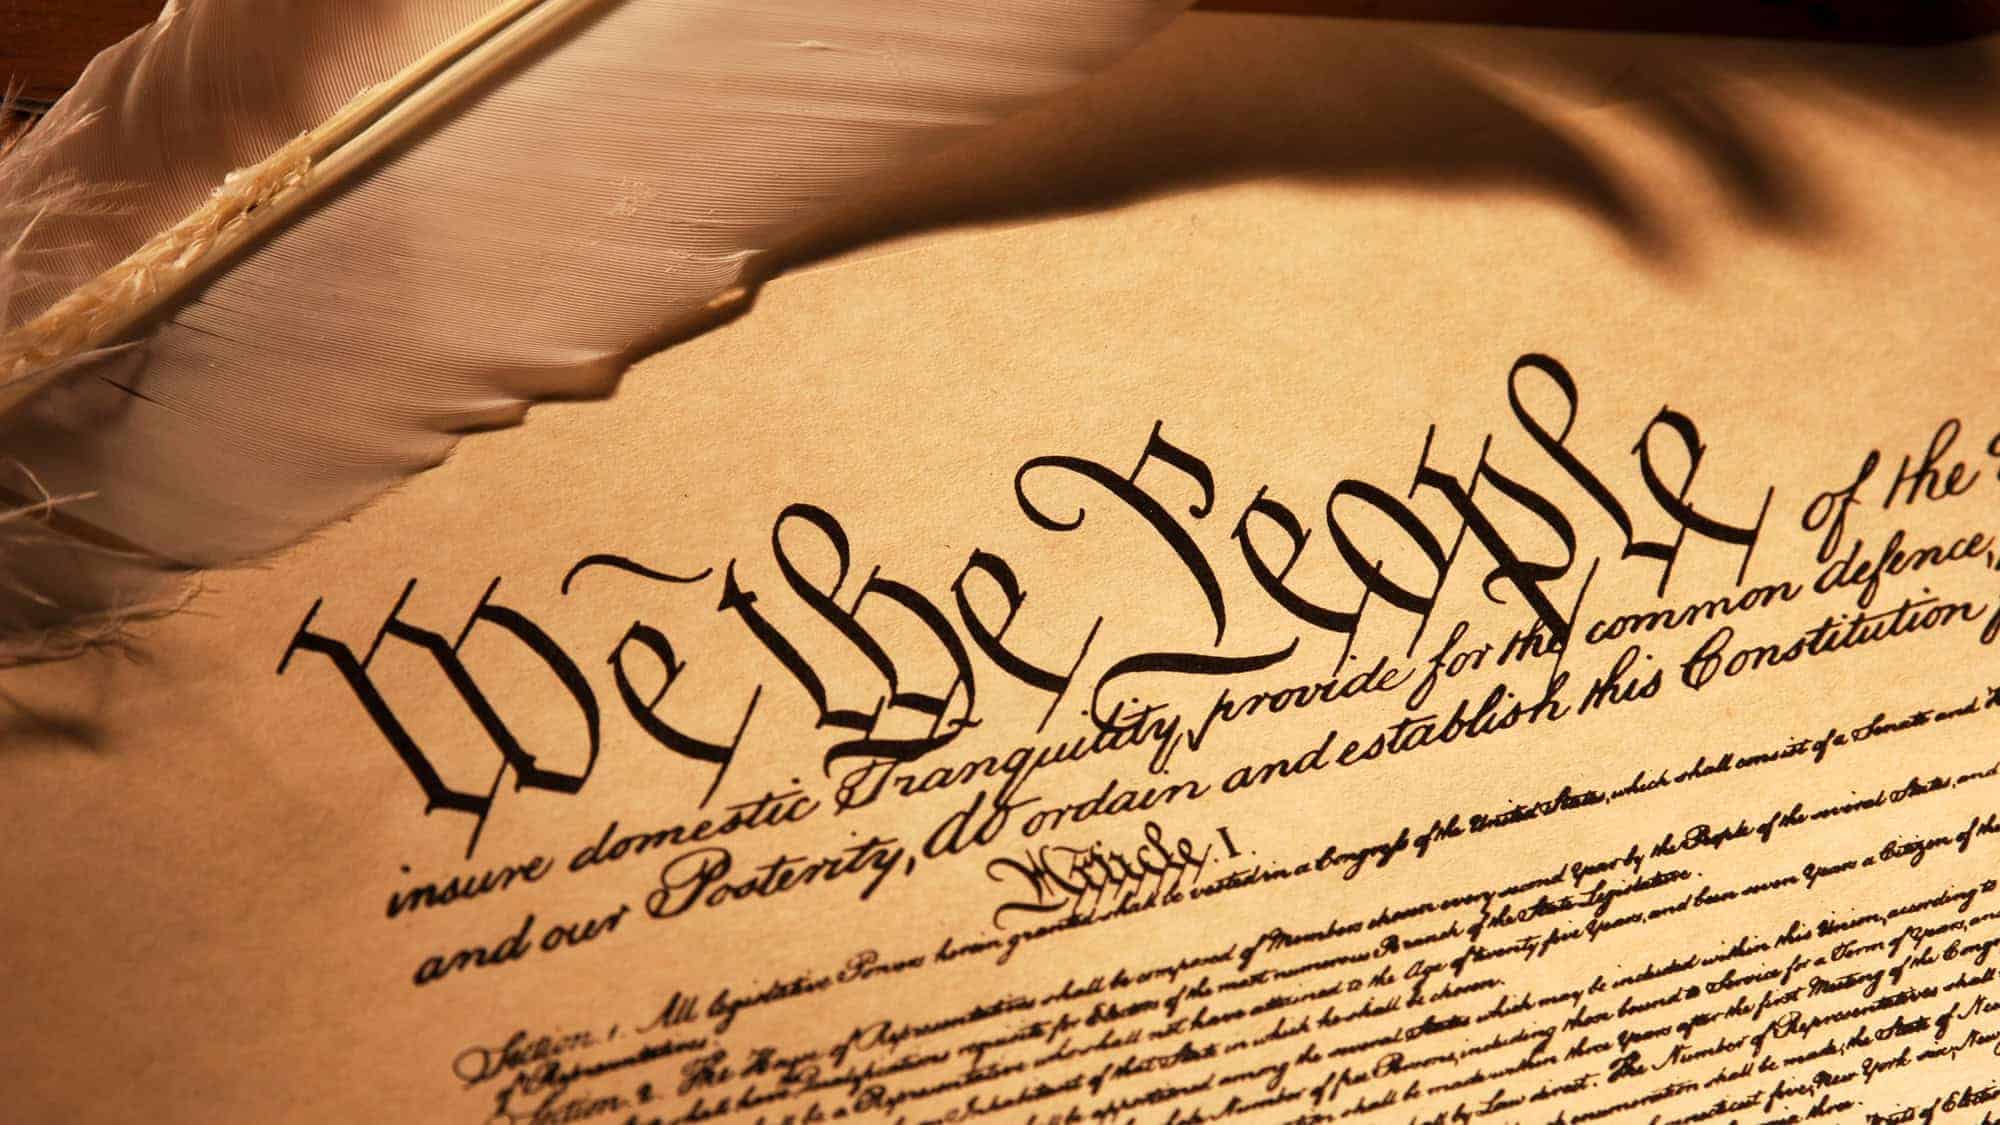 We the People of the
insure domestic Tranquility, provide for the common defence,
and our Posterity, do ordain and establish this Constitution
Article. I.
Section. 1. All legislative Powers herein granted shall be vested in a Congress of the United States, which shall consist of a Senate and
of Representatives.
Section. 2. The House of Representatives shall be composed of Members chosen every second Year by the People of the several States, and
shall have Qualifications requisite for Electors of the most numerous Branch of the State Legislature.
be a Representative who shall not have attained to the Age of twenty five Years, and been seven Years a Citizen of the
Inhabitant of that State in which he shall be chosen.
be apportioned among the several States which may be included within this Union, according to
Number of free Persons, including those bound to Service for a Term of Years, and
shall be made within three Years after the first Meeting of the
by Law direct. The Number of Representatives shall
enumeration shall be made, the State of
five, New York six, New
three.